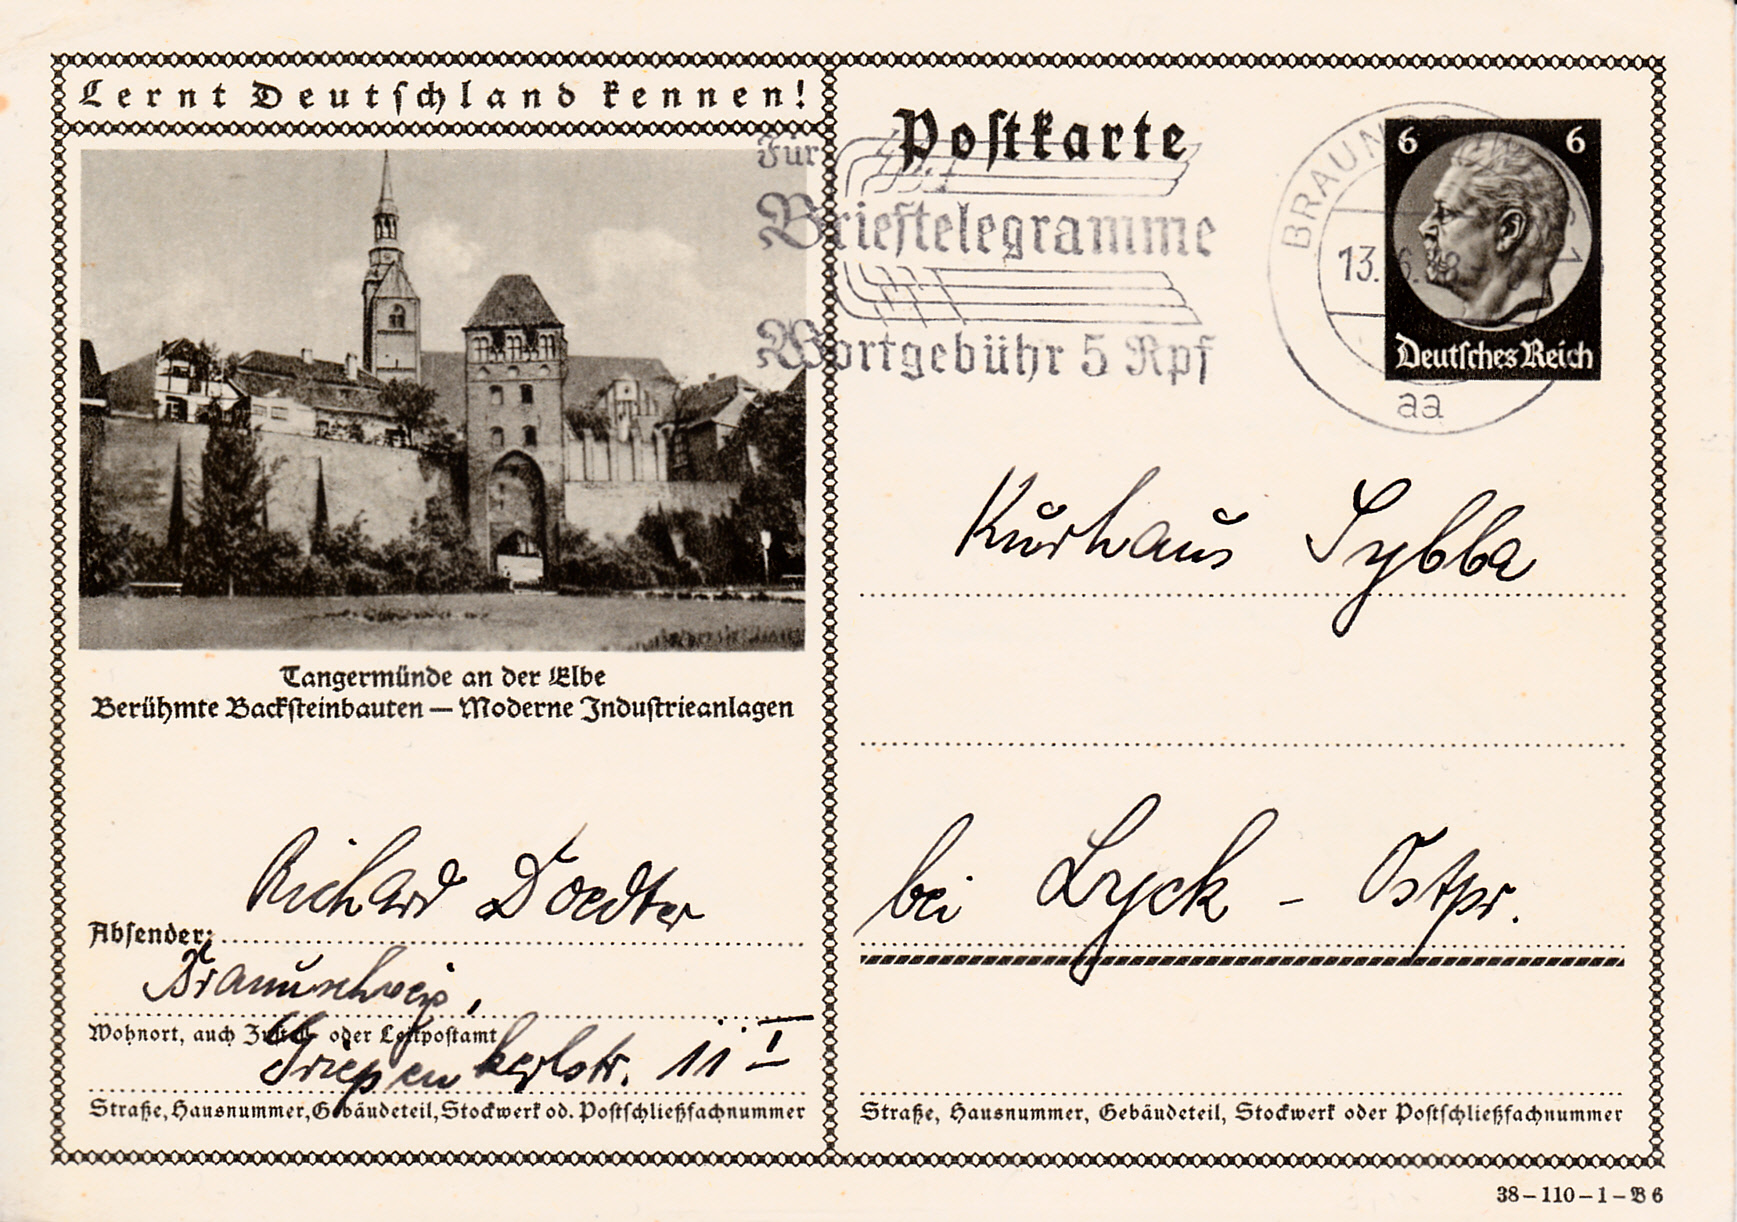 Lernt Deutschland kennen!
Postkarte
Für
Brieftelegramme
Wortgebühr 5 Rpf
BRAUNSCHWEIG 1
13.6.38
aa
6 6
Deutsches Reich
Tangermünde an der Elbe
Berühmte Backsteinbauten — Moderne Industrieanlagen
Kurhaus Sybba
bei Lyck - Ostpr.
Richard Doedter
Absender:
Braunschweig,
Wohnort, auch Zustell- oder Leitpostamt
Griepenkerlstr. 11 I
Straße, Hausnummer, Gebäudeteil, Stockwerk od. Postschließfachnummer
Straße, Hausnummer, Gebäudeteil, Stockwerk oder Postschließfachnummer
38–110–1–B 6